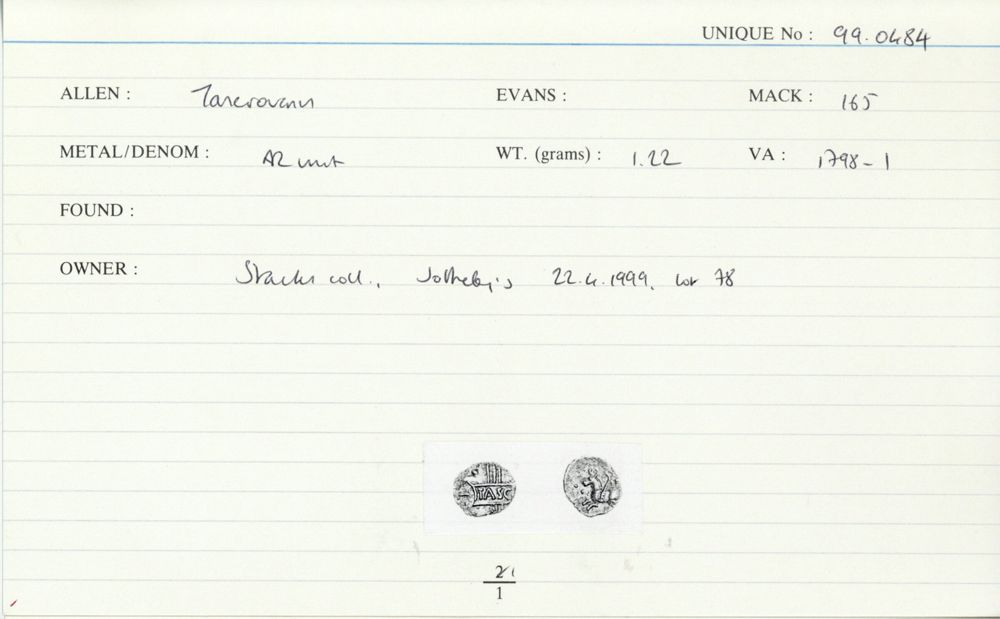 UNIQUE No : 99.0484
ALLEN : Tasciovanus EVANS : MACK : 165
METAL/DENOM : AR unit WT. (grams) : 1.22 VA : 1798-1
FOUND :
OWNER : Stacks coll., Sotheby's 22.4.1999, lot 78
TASC
1